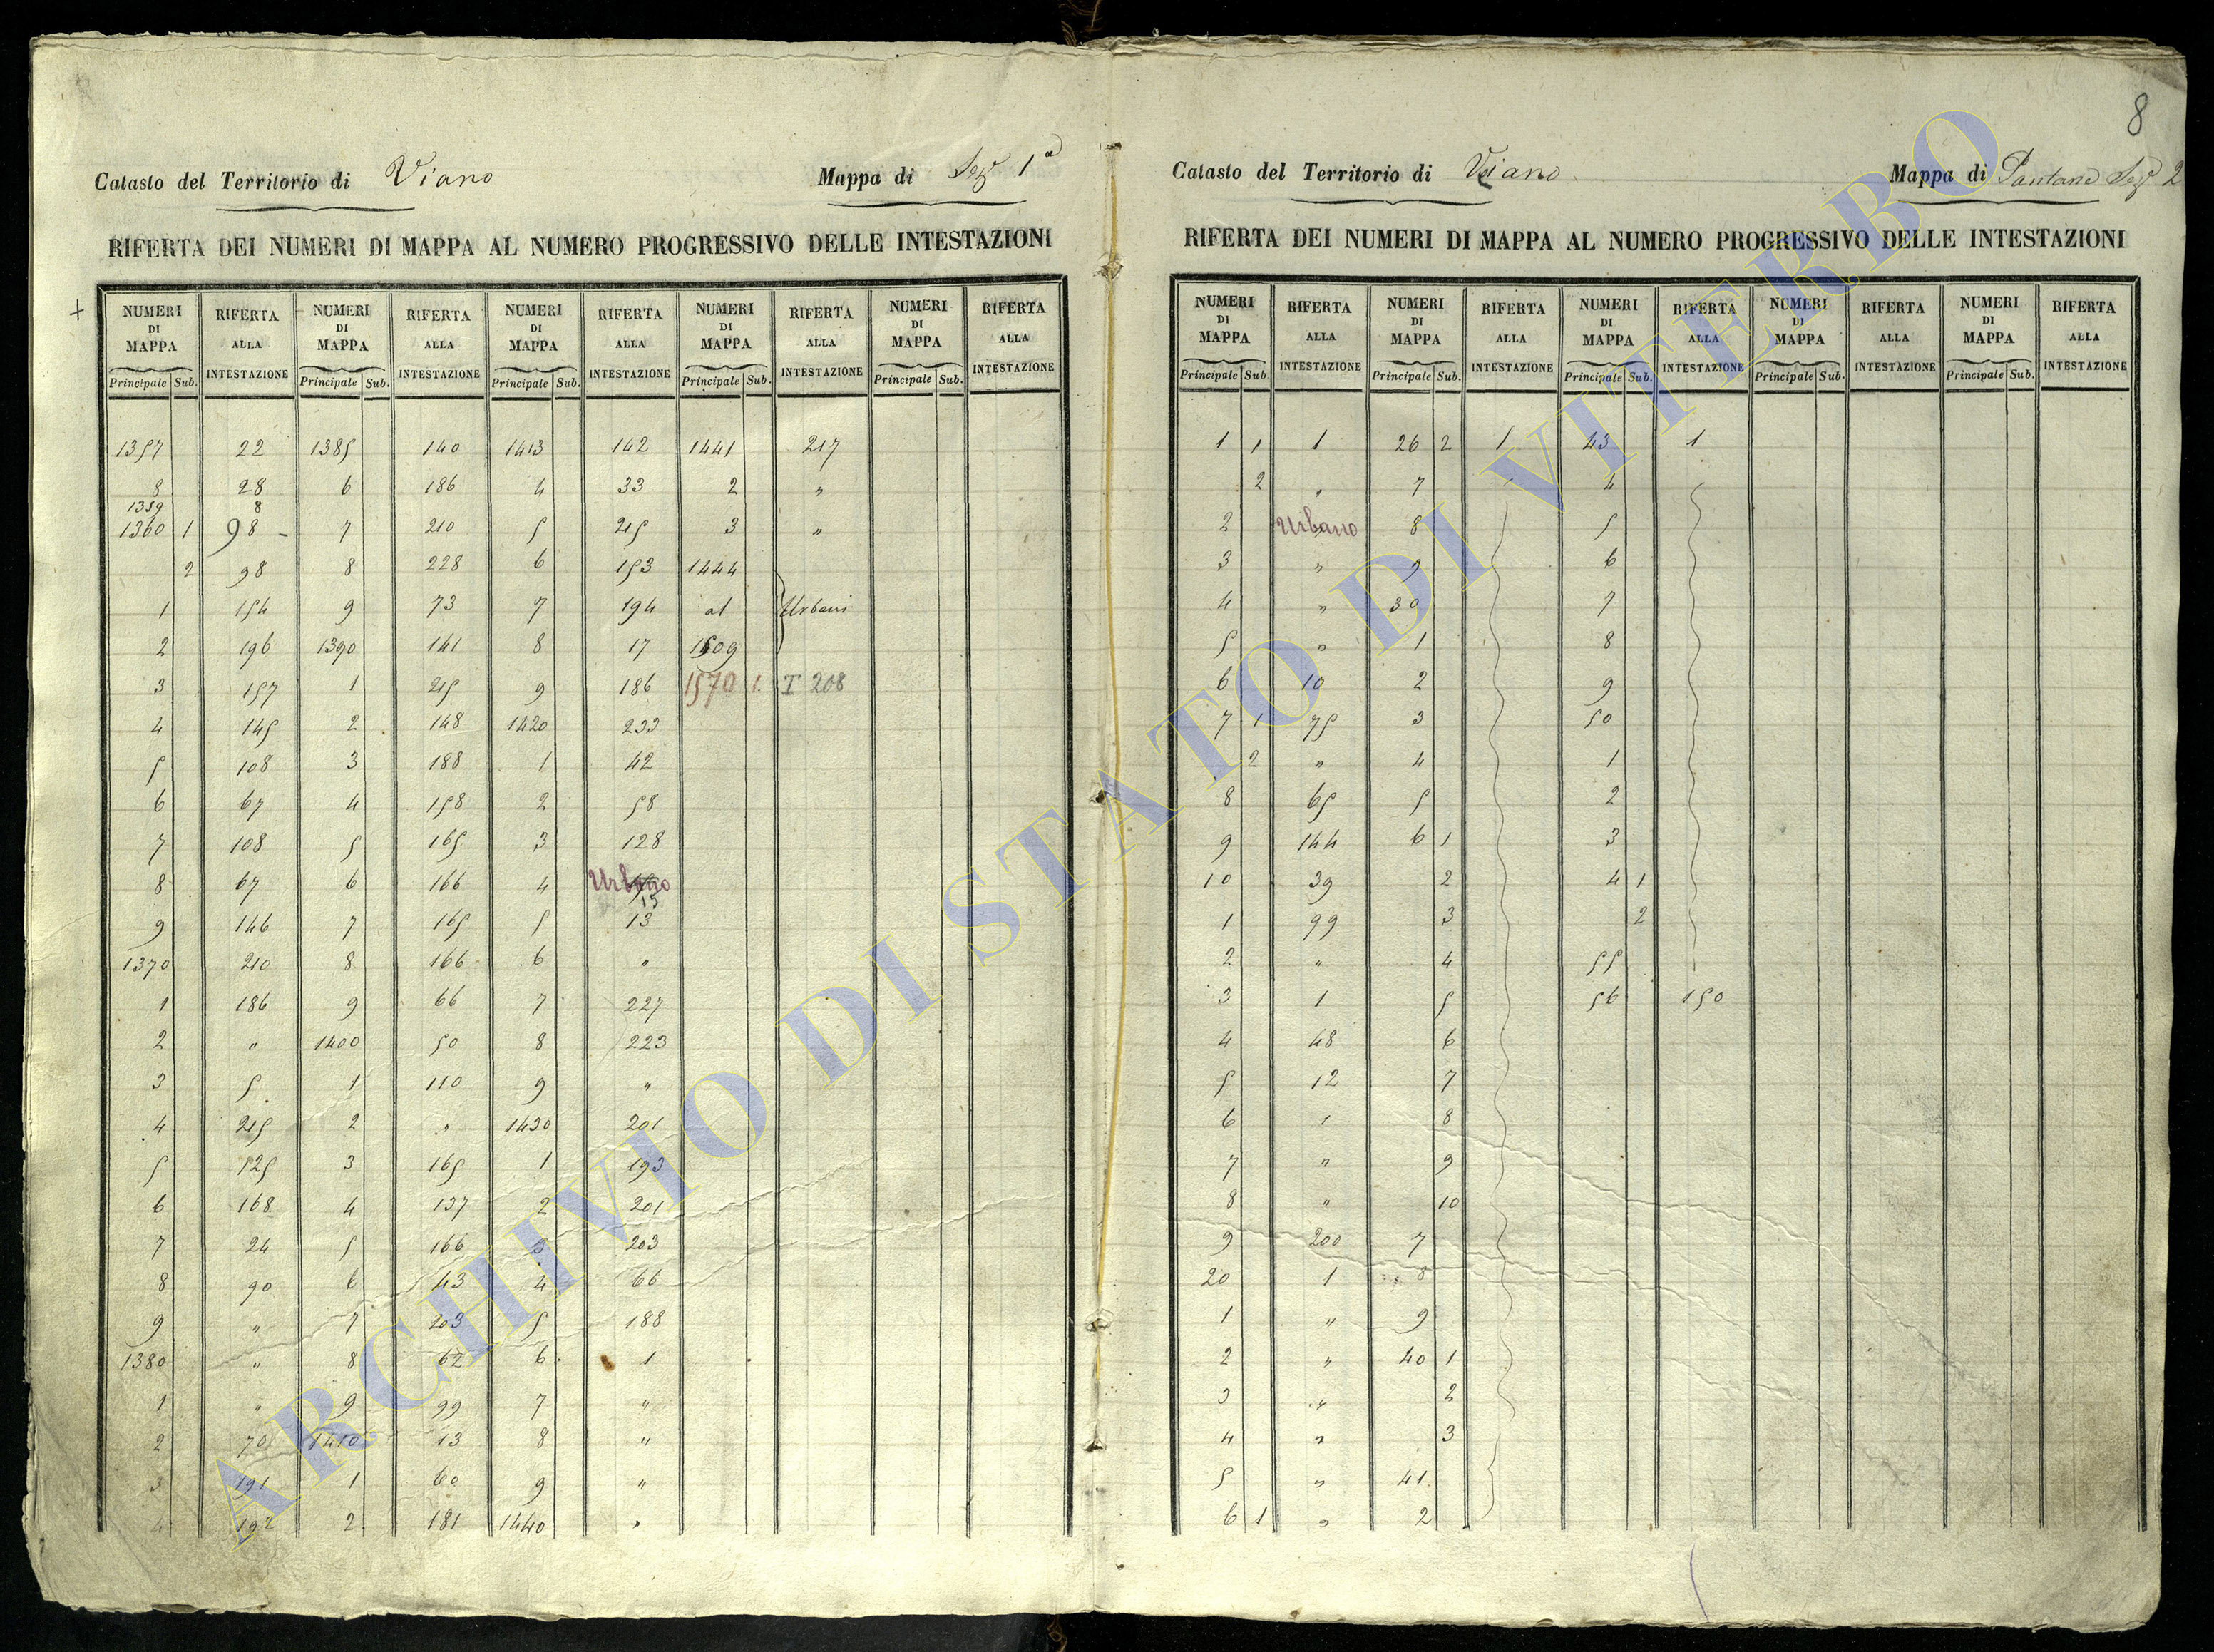 8
Catasto del Territorio di Viano Mappa di Sez. 1a
RIFERTA DEI NUMERI DI MAPPA AL NUMERO PROGRESSIVO DELLE INTESTAZIONI
+
NUMERI DI MAPPA RIFERTA ALLA INTESTAZIONE NUMERI DI MAPPA RIFERTA ALLA INTESTAZIONE NUMERI DI MAPPA RIFERTA ALLA INTESTAZIONE NUMERI DI MAPPA RIFERTA ALLA INTESTAZIONE NUMERI DI MAPPA RIFERTA ALLA INTESTAZIONE
Principale Sub. Principale Sub. Principale Sub. Principale Sub. Principale Sub.
1357 22 1385 140 1413 142 1441 217
8 28 6 186 4 33 2 "
1359 8
1360 1 98 - 7 210 5 215 3 "
2 98 8 228 6 153 1444
1 154 9 73 7 194 al Urbani
2 196 1390 141 8 17 1509
3 157 1 215 9 186 1570 1. I 208
4 145 2 148 1420 233
5 108 3 188 1 42
6 67 4 158 2 58
7 108 5 165 3 128
8 67 6 166 4 Urbano
15
9 146 7 165 5 13
1370 210 8 166 6 "
1 186 9 66 7 227
2 " 1400 50 8 223
3 5 1 110 9 "
4 215 2 " 1430 201
5 125 3 165 1 193
6 168 4 137 2 201
7 24 5 166 3 203
8 90 6 43 4 66
9 " 7 203 5 188
1380 " 8 62 6 1
1 " 9 99 7 "
2 70 1410 13 8 "
3 191 1 60 9 "
4 192 2 181 1440 "
Catasto del Territorio di Viano Mappa di Pantano Sez. 2
RIFERTA DEI NUMERI DI MAPPA AL NUMERO PROGRESSIVO DELLE INTESTAZIONI
NUMERI DI MAPPA RIFERTA ALLA INTESTAZIONE NUMERI DI MAPPA RIFERTA ALLA INTESTAZIONE NUMERI DI MAPPA RIFERTA ALLA INTESTAZIONE NUMERI DI MAPPA RIFERTA ALLA INTESTAZIONE NUMERI DI MAPPA RIFERTA ALLA INTESTAZIONE
Principale Sub. Principale Sub. Principale Sub. Principale Sub. Principale Sub.
1 1 1 26 2 1 43 1
2 " 7 4
2 Urbano 8 5
3 " 9 6
4 " 30 7
5 " 1 8
6 10 2 9
7 1 75 3 50
2 " 4 1
8 65 5 2
9 144 6 1 3
10 39 2 4 1
1 99 3 2
2 " 4 55
3 1 5 56 150
4 48 6
5 12 7
6 1 8
7 " 9
8 " 10
9 200 7
20 1 8
1 " 9
2 " 40 1
3 " 2
4 " 3
5 " 41
6 1 " 2
ARCHIVIO DI STATO DI VITERBO